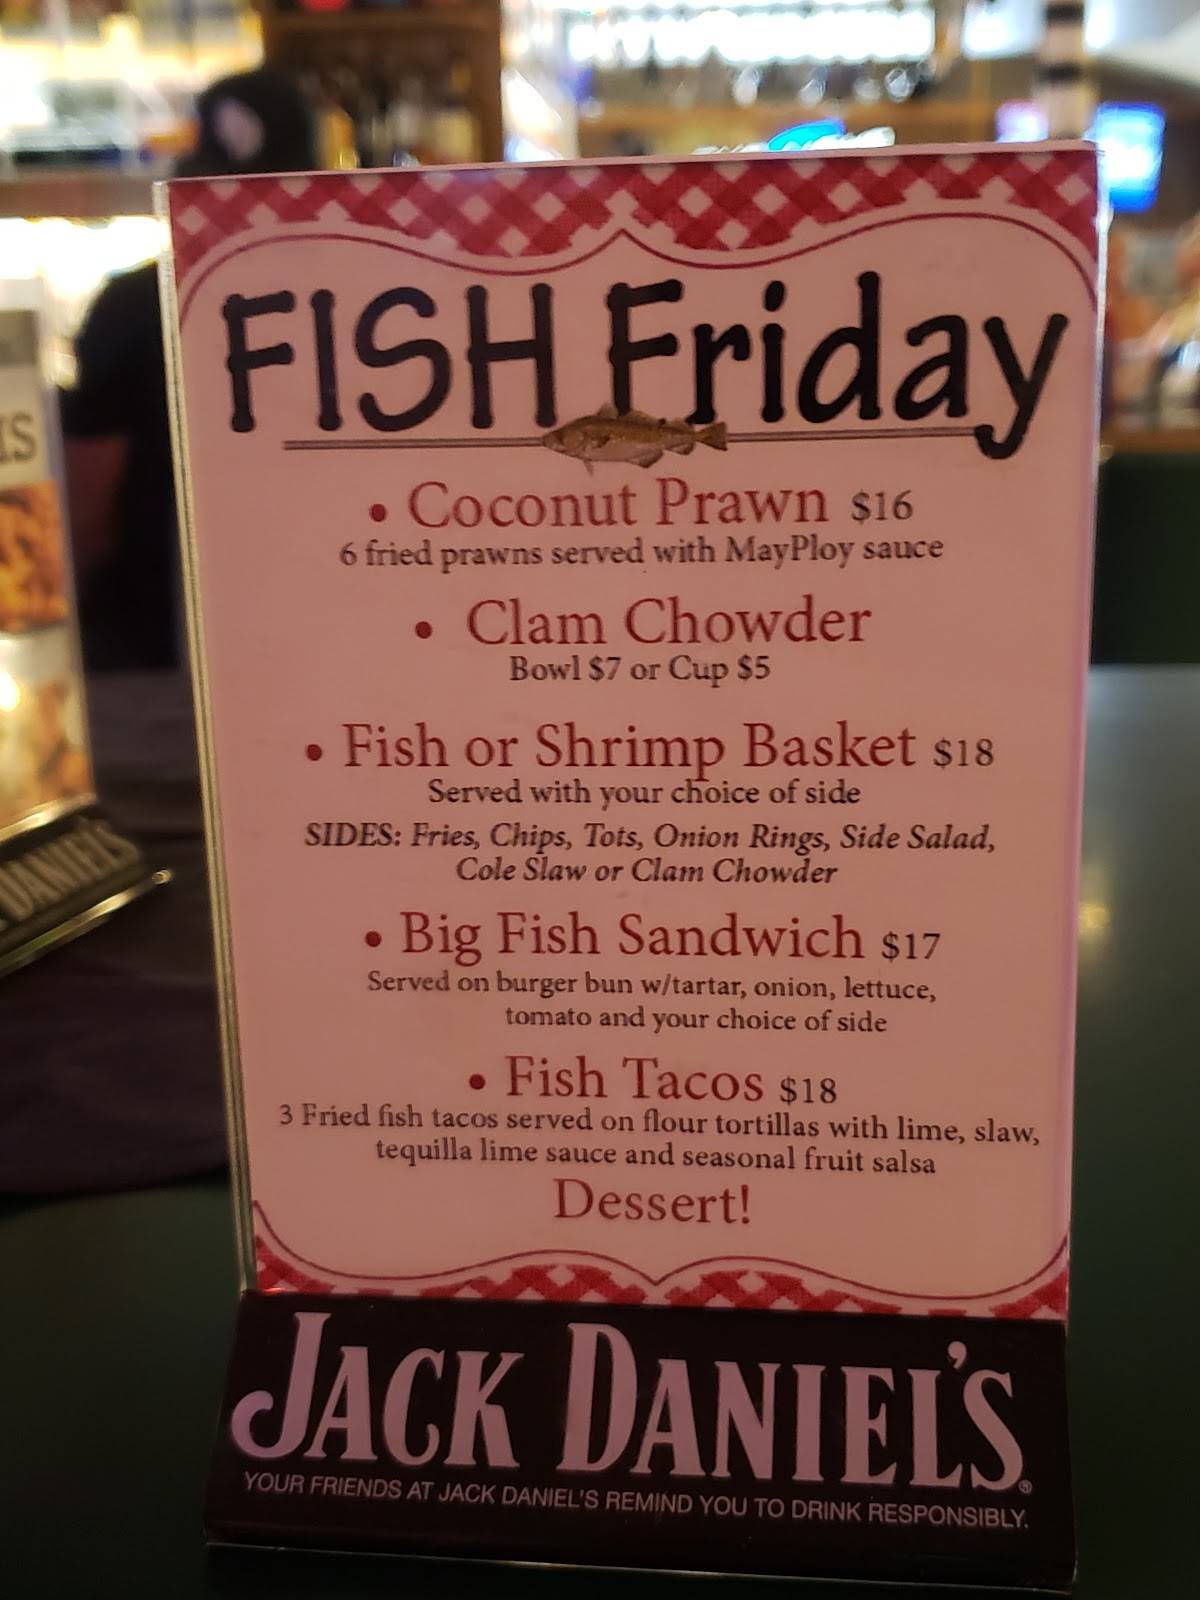 FISH Friday
• Coconut Prawn $16
6 fried prawns served with MayPloy sauce
• Clam Chowder
Bowl $7 or Cup $5
• Fish or Shrimp Basket $18
Served with your choice of side
SIDES: Fries, Chips, Tots, Onion Rings, Side Salad,
Cole Slaw or Clam Chowder
• Big Fish Sandwich $17
Served on burger bun w/tartar, onion, lettuce,
tomato and your choice of side
• Fish Tacos $18
3 Fried fish tacos served on flour tortillas with lime, slaw,
tequilla lime sauce and seasonal fruit salsa
Dessert!
JACK DANIEL'S
YOUR FRIENDS AT JACK DANIEL'S REMIND YOU TO DRINK RESPONSIBLY.
DANIEL'S